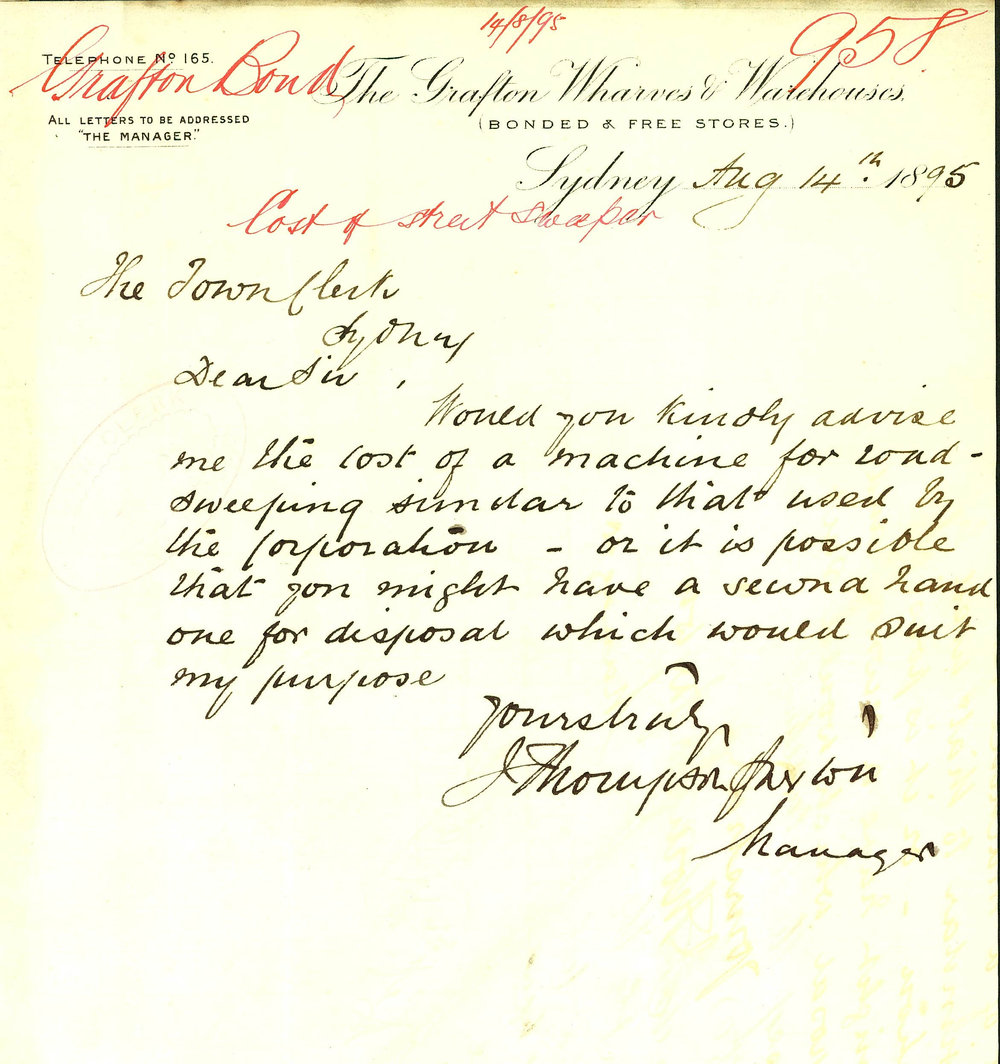 14/8/95
958
TELEPHONE No 165.
Grafton Bond
The Grafton Wharves & Warehouses,
ALL LETTERS TO BE ADDRESSED
"THE MANAGER."
(BONDED & FREE STORES.)
Sydney Aug 14th. 1895
Cost of street sweeper
The Town Clerk
Sydney
Dear Sir,
Would you kindly advise
me the cost of a machine for road-
sweeping similar to that used by
the Corporation - or it is possible
that you might have a second hand
one for disposal which would suit
my purpose
Yours truly
J Thompson
Manager